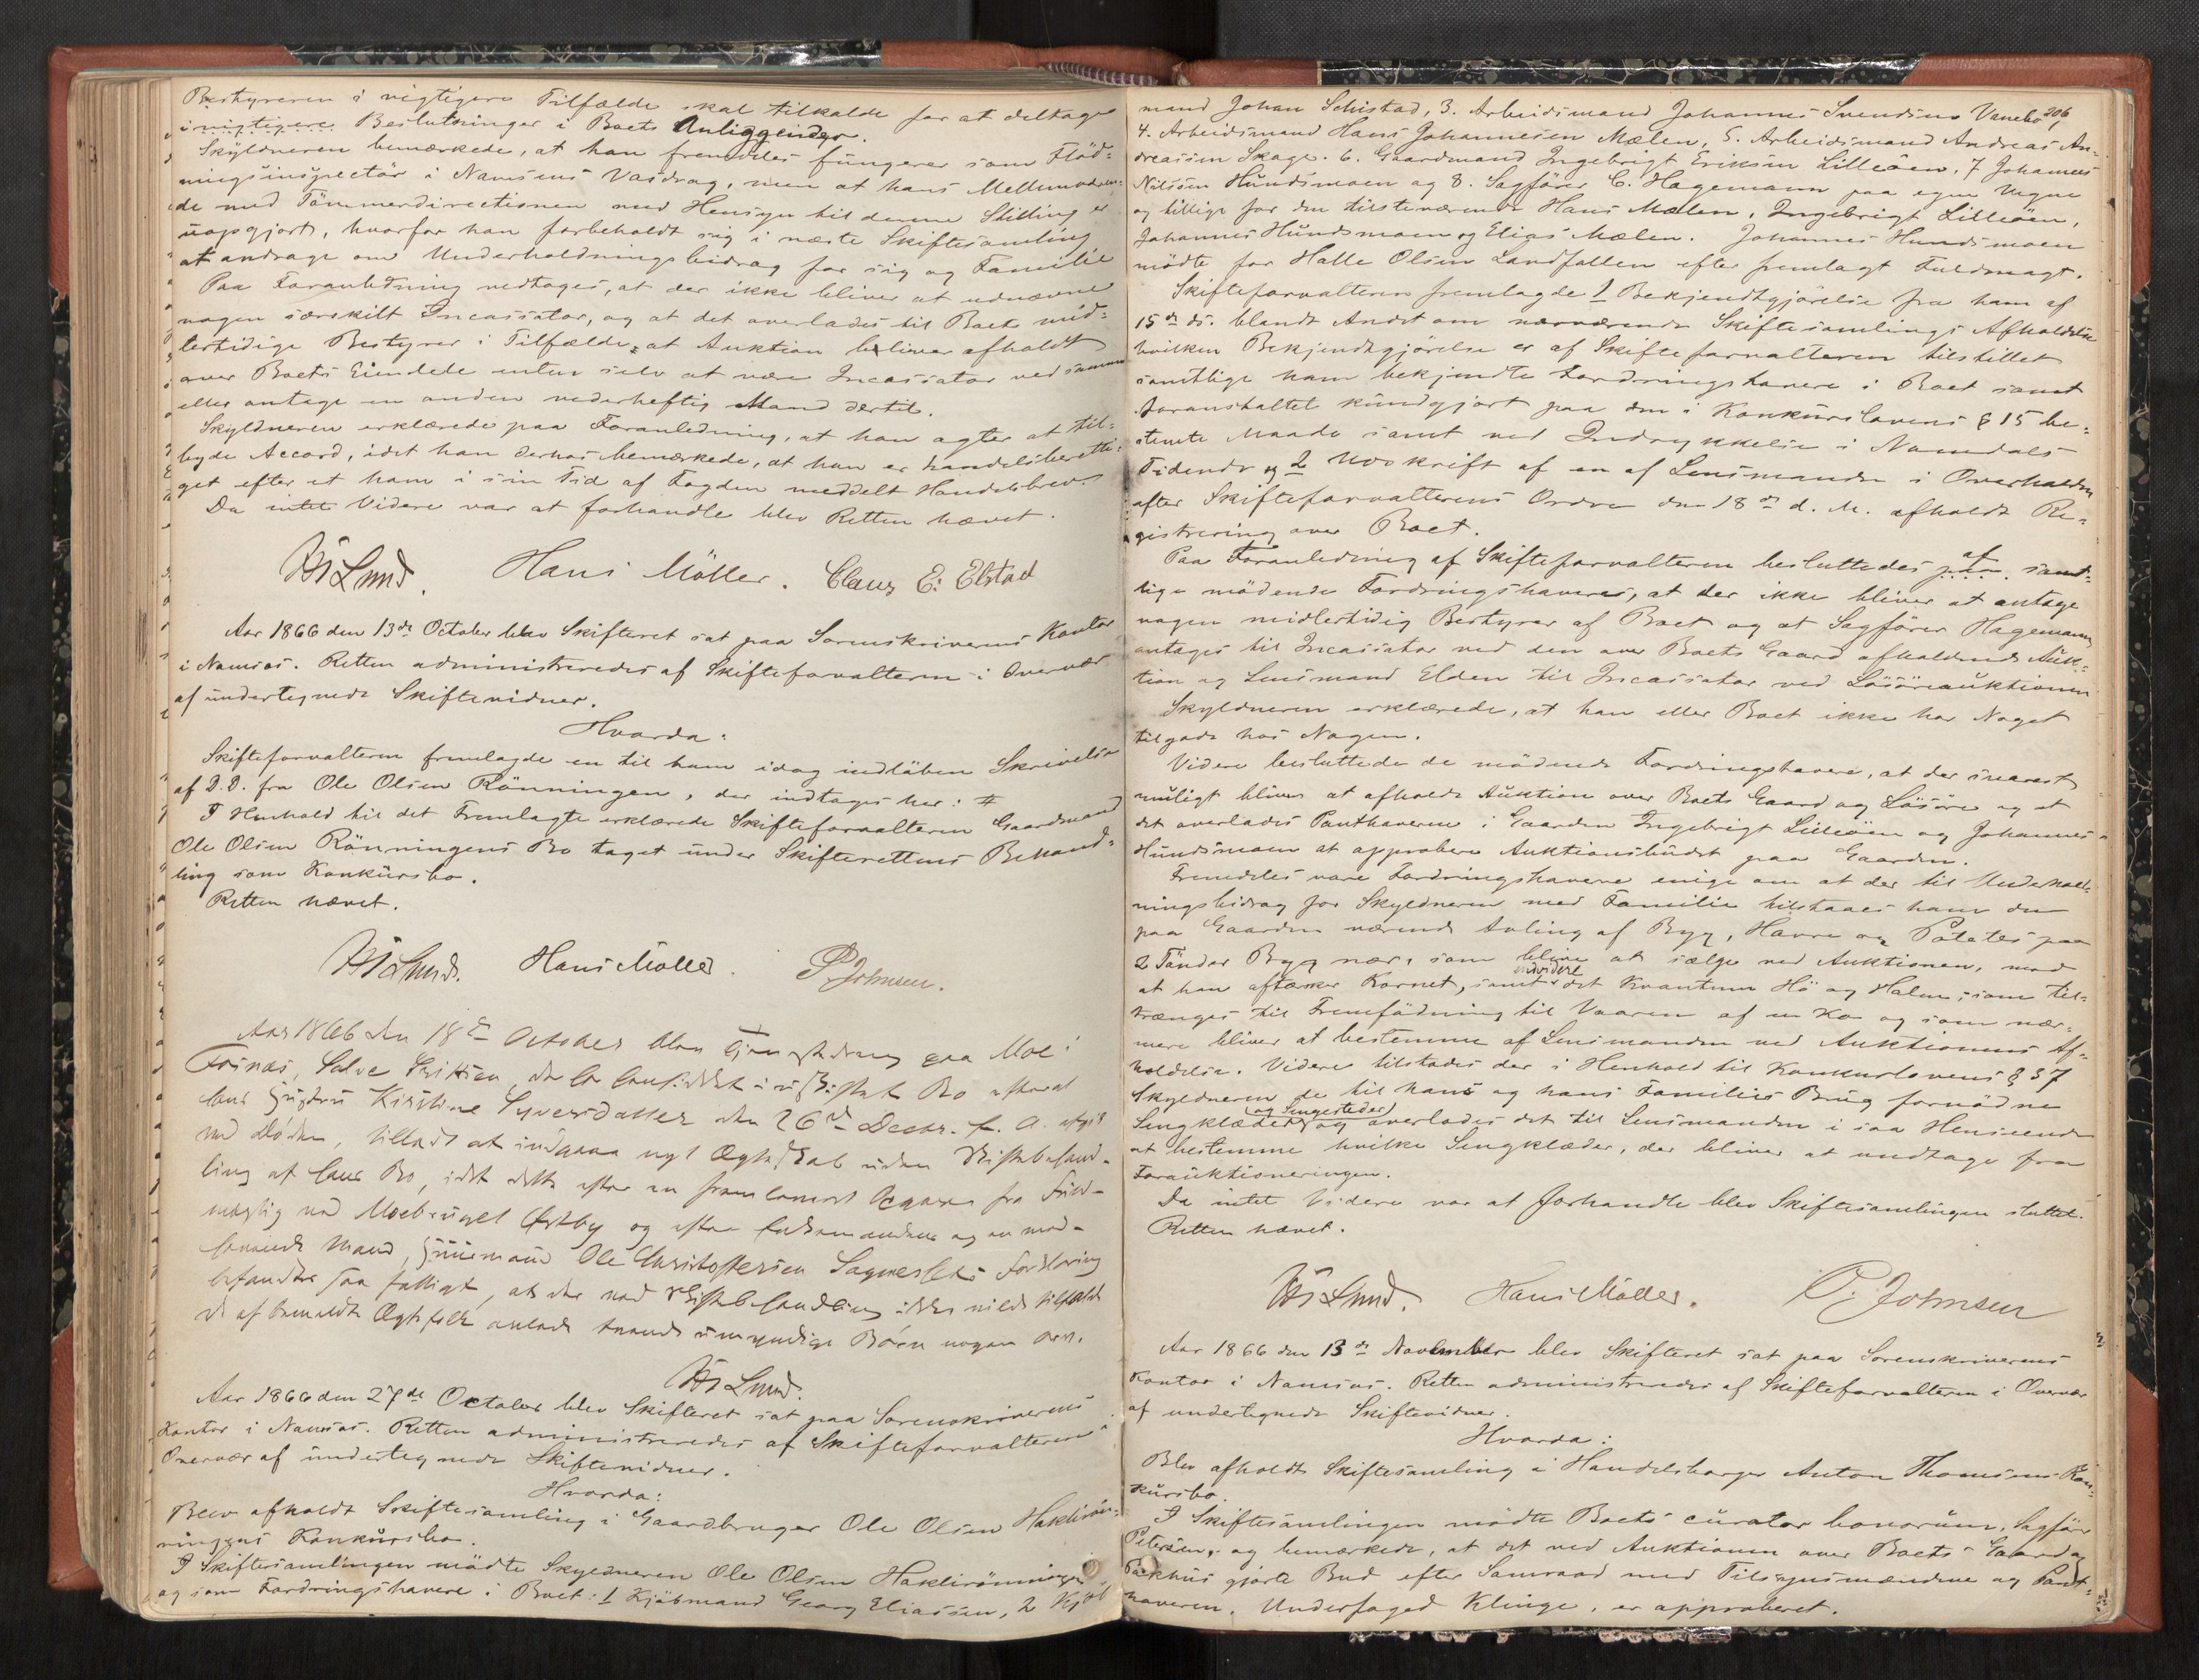 Bestyreren i vigtigere Tilfælde skal tilkalde for at deltage
i vigtigere Beslutninger i Boets Anliggender.
Skyldneren bemærkede, at han fremdeles fungerer som Flød-
ningsinspectør i Namsens Vasdrag, men at hans Mellemværen-
de med Tømmerdirectionen med Hensyn til denne Stilling er
uopgjort, hvorfor han forbeholdt sig i næste Skiftesamling
at andrage om Underholdningsbidrag for sig og Familie
Paa Foranledning vedtoges, at der ikke bliver at udnævne
nogen særskilt Incassator, og at det overlades til Boets mid-
lertidige Bestyrer i Tilfælde, at Auktion bliver afholdt
over Boets Eiendele enten selv at være Incassator ved samme
eller antage en anden vederheftig Mand dertil.
Skyldneren erklærede paa Foranledning, at han agter at til-
byde Accord, idet han derhos bemærkede, at han er handelsberetti-
get efter et ham i sin Tid af Fogden meddelt Handelsbrev.
Da intet Videre var at forhandle blev Retten hævet.
Lund. Hans Möller. Claus E. Elstad
Aar 1866 den 13de October blev Skifteret sat paa Sorenskriverens Kontor
i Namsos. Retten administreredes af Skifteforvalteren i Overvær
af undertegnede Skiftevidner.
Hvorda:
Skifteforvalteren fremlagde en til ham idag indløben Skrivelse
af D.D. fra Ole Olsen Rönningen, der indtages her: #
I Henhold til det Fremlagte erklærede Skifteforvalteren Gaardmand
Ole Olsen Rönningens Bo taget under Skifterettens Behand-
ling som Konkursbo.
Retten hævet.
Lund. Hans Möller. P. Johnsen.
Aar 1866 den 18de October blev
Fosnæs, at
hans Hustru Kirstine Syversdatter den 26de Decbr. f. A. afgik
ved Døden, tilladt at indgaa nyt Ægteskab uden Skiftebehand-
ling af hans Bo, idet dette efter en fra Fuld-
mægtig og efter Enkemandens og en med-
Mand, Huusmand Ole Christophersen Forklaring
befandtes saa fattigt, at der ved Skiftebehandling ikke vilde tilfalde
de af Ægtefolk umyndige Børn nogen Arv.
Lund.
Aar 1866 den 27de October blev Skifteret sat paa Sorenskriverens
Kontor i Namsos. Retten administreredes af Skifteforvalteren i
Overvær af undertegnede Skiftevidner.
Hvorda:
Blev afholdt Skiftesamling i Gaardbruger Ole Olsen Haklirön-
ningens Konkursbo.
I Skiftesamlingen mödte Skyldneren Ole Olsen Haklirönningen
og som Fordringshavere i Boet: 1 Kjöbmand Georg Eliassen, 2 Kjöb
206
mand Johan Schistad, 3. Arbeidsmand Johannes Svendsen Vanebo
4. Arbeidsmand Hans Johannesen Mælen, 5. Arbeidsmand Andreas An-
dreassen Skage. 6. Gaardmand Ingebrigt Eriksen Lilleöen, 7 Johannes
Nilssen Hundsmoen og 8. Sagförer C. Hagemann paa egne Vegne
og tillige for den tilstedeværende Hans Mælen, Ingebrigt Lilleöen,
Johannes Hundsmoen og Elias Mælen. Johannes Hundsmoen
mödte for Halle Olsen Landfallen efter fremlagt Fuldmagt.
Skifteforvalteren fremlagde 1 Bekjendtgjörelse fra ham af
15de ds. blandt Andet om nærværende Skiftesamlings Afholdelse
hvilken Bekjendtgjörelse er af Skifteforvalteren tilstillet
samtlige ham bekjendte Fordringshavere i Boet samt
foranstaltet kundgjort paa den i Konkurslovens § 15 be-
stemte Maade samt ved Indrykkelse i Namdals
Tidende og 2 Udskrift af en af Lensmanden i Overhalden
efter Skifteforvalterens Ordre den 18de d. M. afholdt Re-
gistrering over Boet.
Paa Foranledning af Skifteforvalteren besluttedes af samt-
lige mødende Fordringshavere, at der ikke bliver at antage
nogen midlertidig Bestyrer af Boet og at Sagförer Hagemann
antages til Incassator ved den over Boets Gaard afholdende Auk-
tion og Lensmand Elden til Incassator ved Lösöreauktionen
Skyldneren erklærede, at han eller Boet ikke har Noget
tilgode hos Nogen.
Videre besluttede de mödende Fordringshavere, at der snarest
muligt bliver at afholde Auktion over Boets Gaard og Lösöre og at
det overlades Panthaverne i Gaarden Ingebrigt Lilleöen og Johannes
Hundsmoen at approbere Auktionsbudet paa Gaarden.
Fremdeles vare Fordringshaverne enige om at der til Underhold-
ningsbidrag for Skyldneren med Familie tilstaaes ham den
paa Gaarden værende Avling af Byg, Havre og Potetes paa
2 Tönder Byg nær, som bliver at sælge ved Auktionen, mod
at han aftærsker Kornet, samt endvidere det Kvantum Hö og Halm, som til-
trænges til Fremfödning til Vaaren af en Ko og som nær-
mere bliver at bestemme af Lensmanden ved Auktionens Af-
holdelse. Videre tilstodes der i Henhold til Konkurslovens § 37
Skyldneren de til hans og hans Families Brug fornödne
Sengklæder (og Sengesteder) og overlodes det til Lensmanden i saa Henseende
at bestemme hvilke Sengklæder, der bliver at undtage fra
Forauktioneringen.
Da intet Videre var at forhandle blev Skiftesamlingen sluttet.
Retten hævet.
Lund. Hans Möller. P. Johnsen
Aar 1866 den 13de November blev Skifteret sat paa Sorenskriverens
Kontor i Namsos. Retten administreredes af Skifteforvalteren i Overvær
af undertegnede Skiftevidner.
Hvorda:
Blev afholdt Skiftesamling i Handelsborger Anton Thomsens Kon-
kursbo.
I Skiftesamlingen mödte Boets curator bonorum, Sagförer
Petersen, og bemærkede, at det ved Auktionen over Boets Gaard og
Pakhus gjorte Bud efter Samraad med Tilsynsmændene og Pant-
haveren, Underfoged Klinge, er approberet.